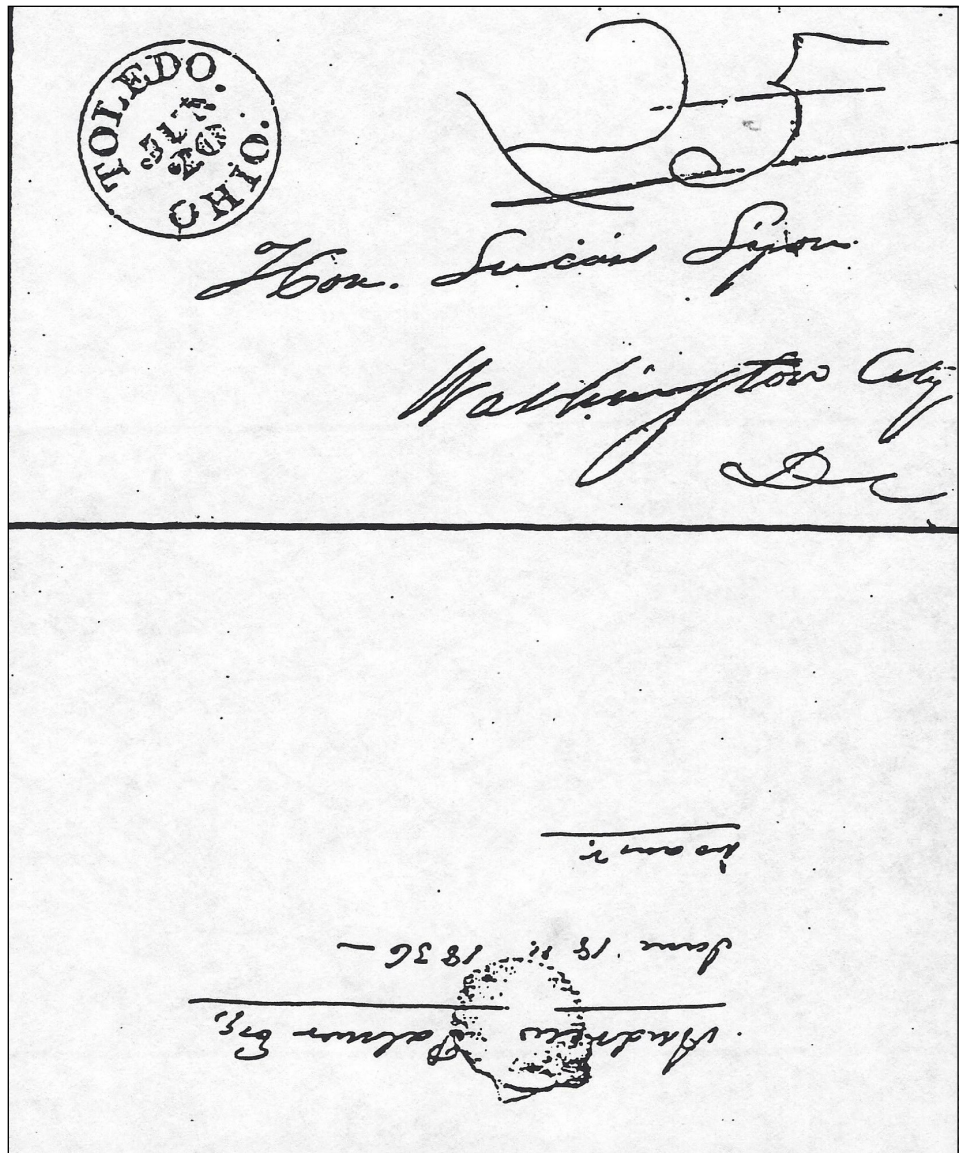 TOLEDO. OHIO.
20
25
Hon. Lucius Lyon
Washington City
Dc
Andrew Palmer Esq,
June 18th 1836 —